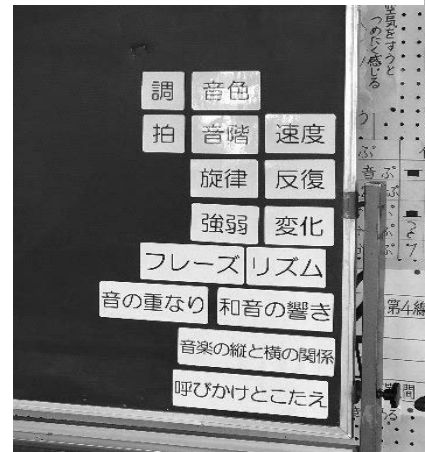 調 音色
拍 音階 速度
旋律 反復
強弱 変化
フレーズ リズム
音の重なり 和音の響き
音楽の縦と横の関係
呼びかけとこたえ
空気をすうと
つめたく感じる
第4線